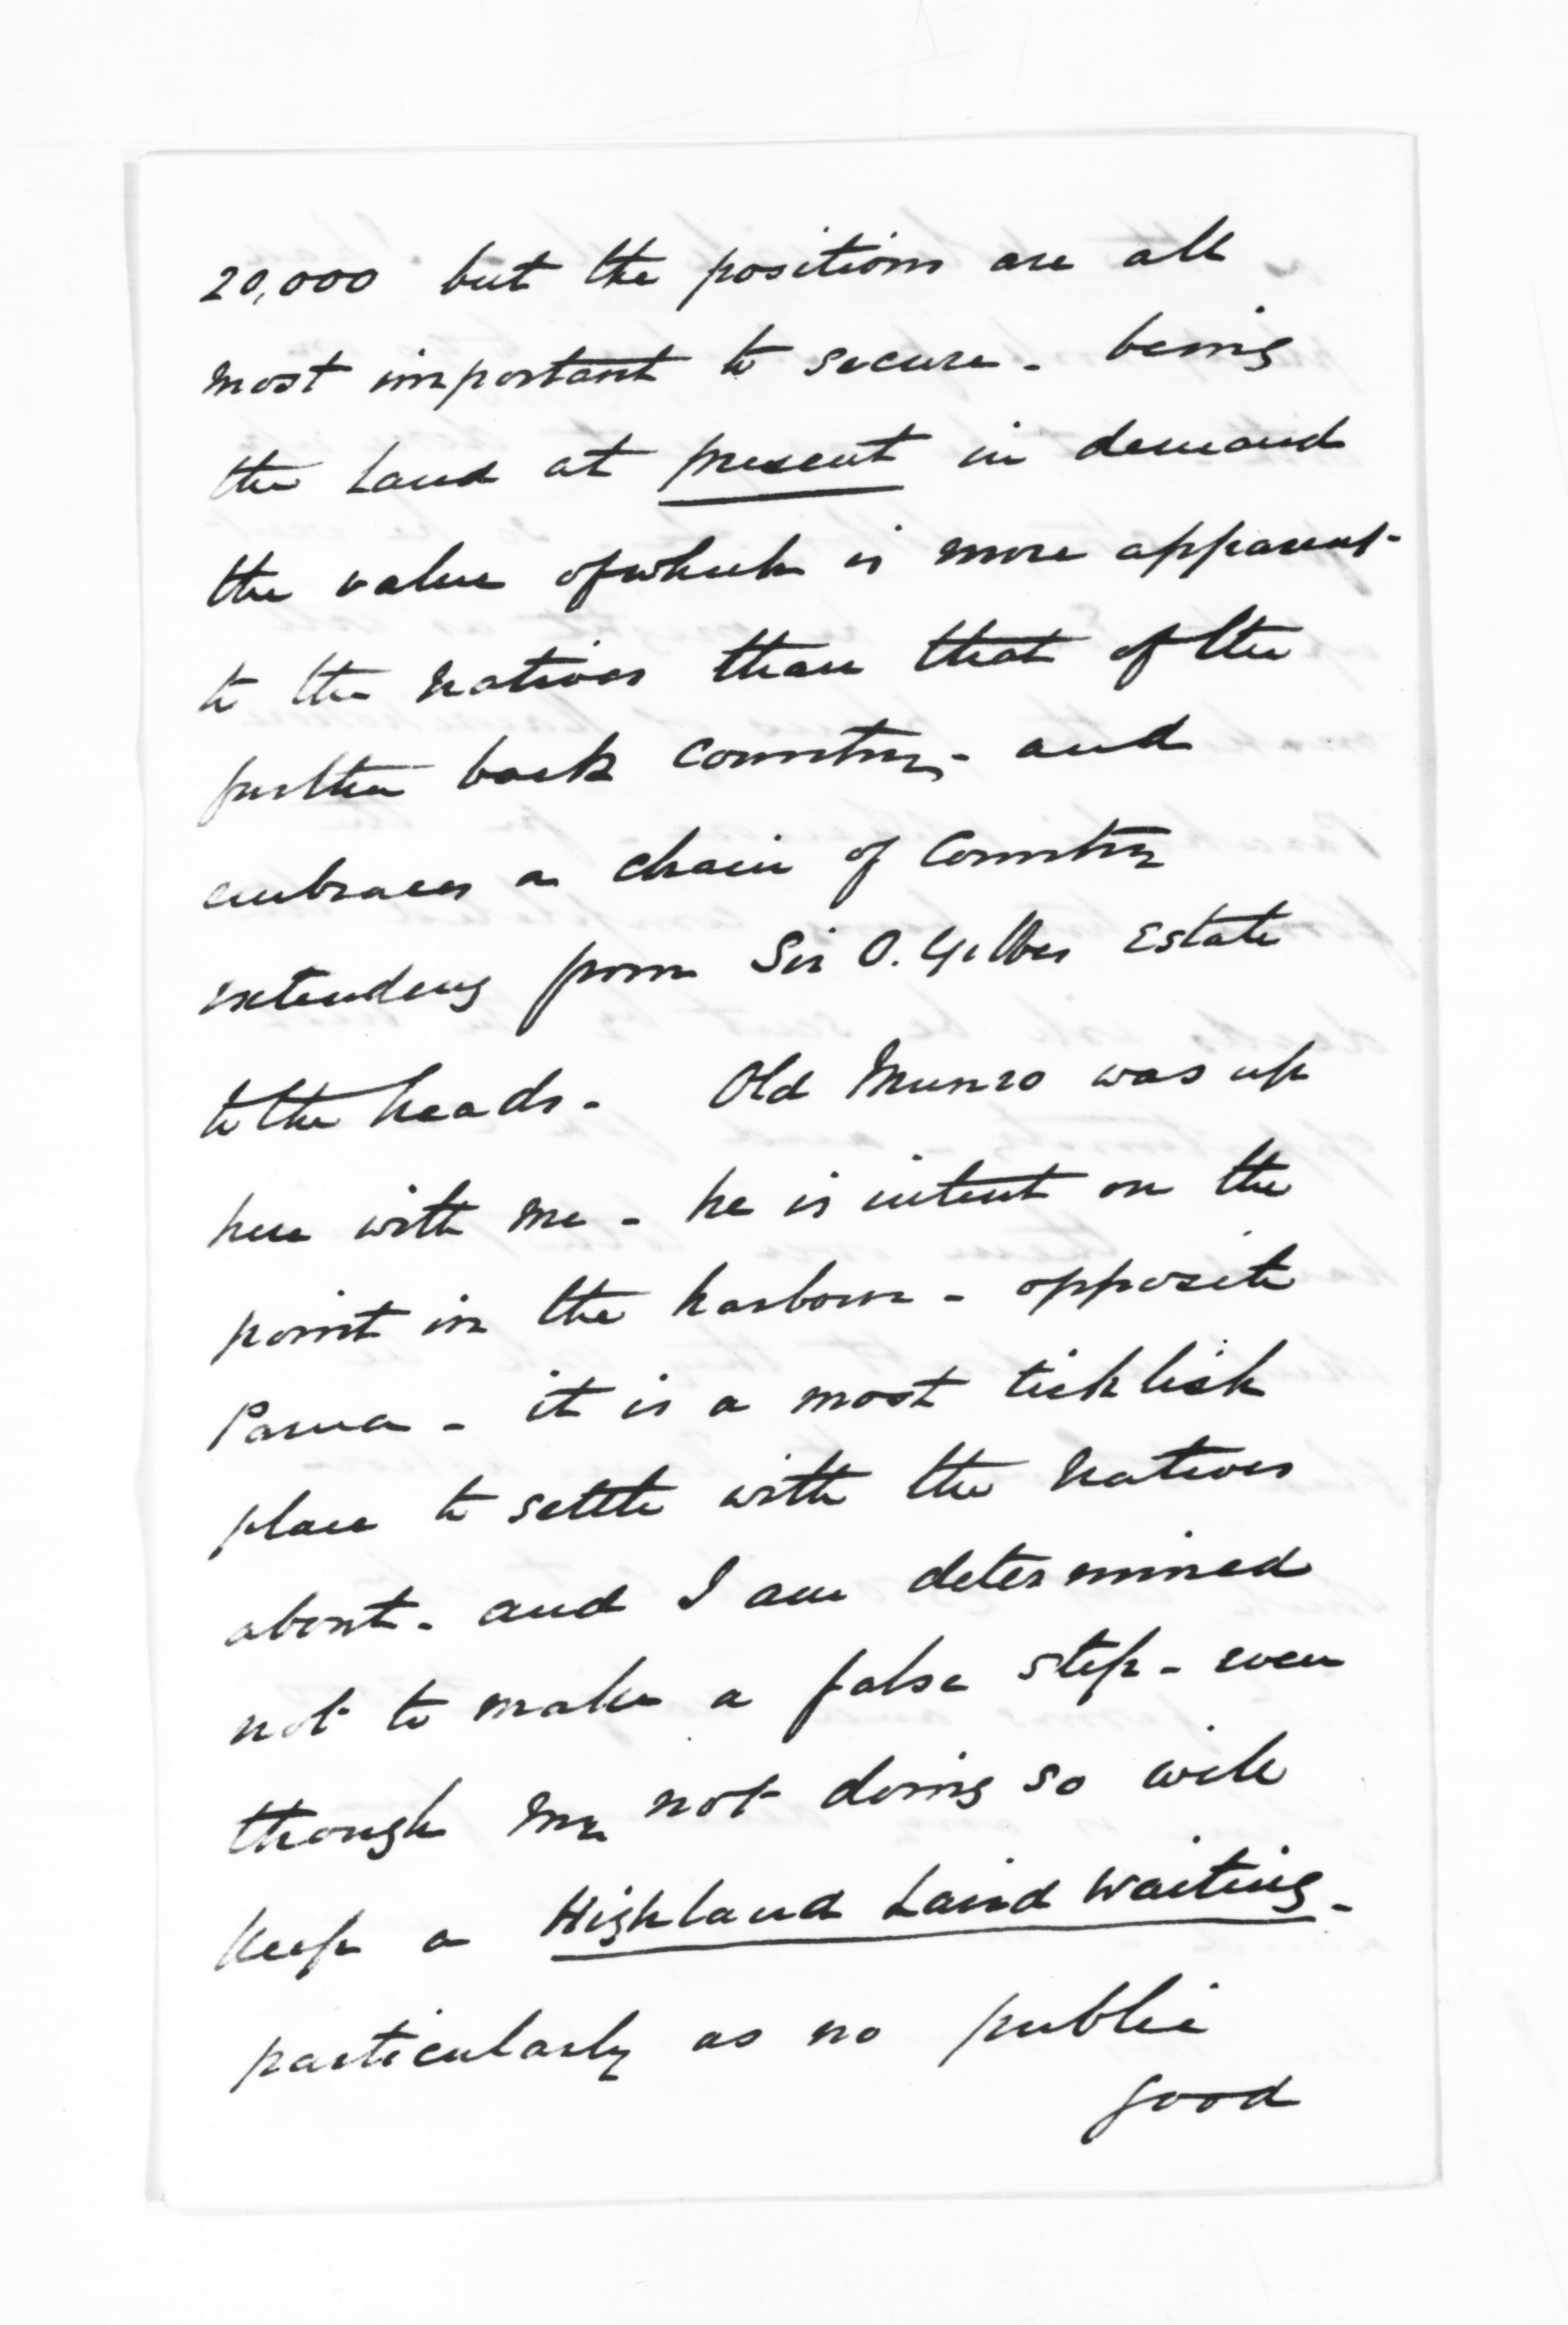 20,000 but the positions are all
most important to secure - being
the Land at present in demand
the value of which is more apparent
to the natives than that of the
further back Country - and
embraces a chain of Country
extending from Sir O. Estate
to the heads - Old Munro was up
here with me - he is intent on the
point in the harbour - opposite
Parua - it is a most ticklish
place to settle with the natives
about - and I am determined
not to make a false step - even
though my not doing so will
keep a Highland Laird waiting -
particularly as no public
good